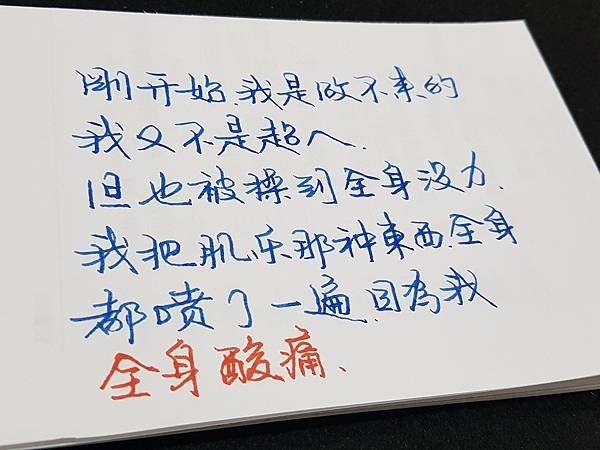 剛开始、我是做不來的
我又不是超人、
但也被操到全身没力、
我把肌乐那神東西、全身
都喷了一遍、因為我
全身酸痛、